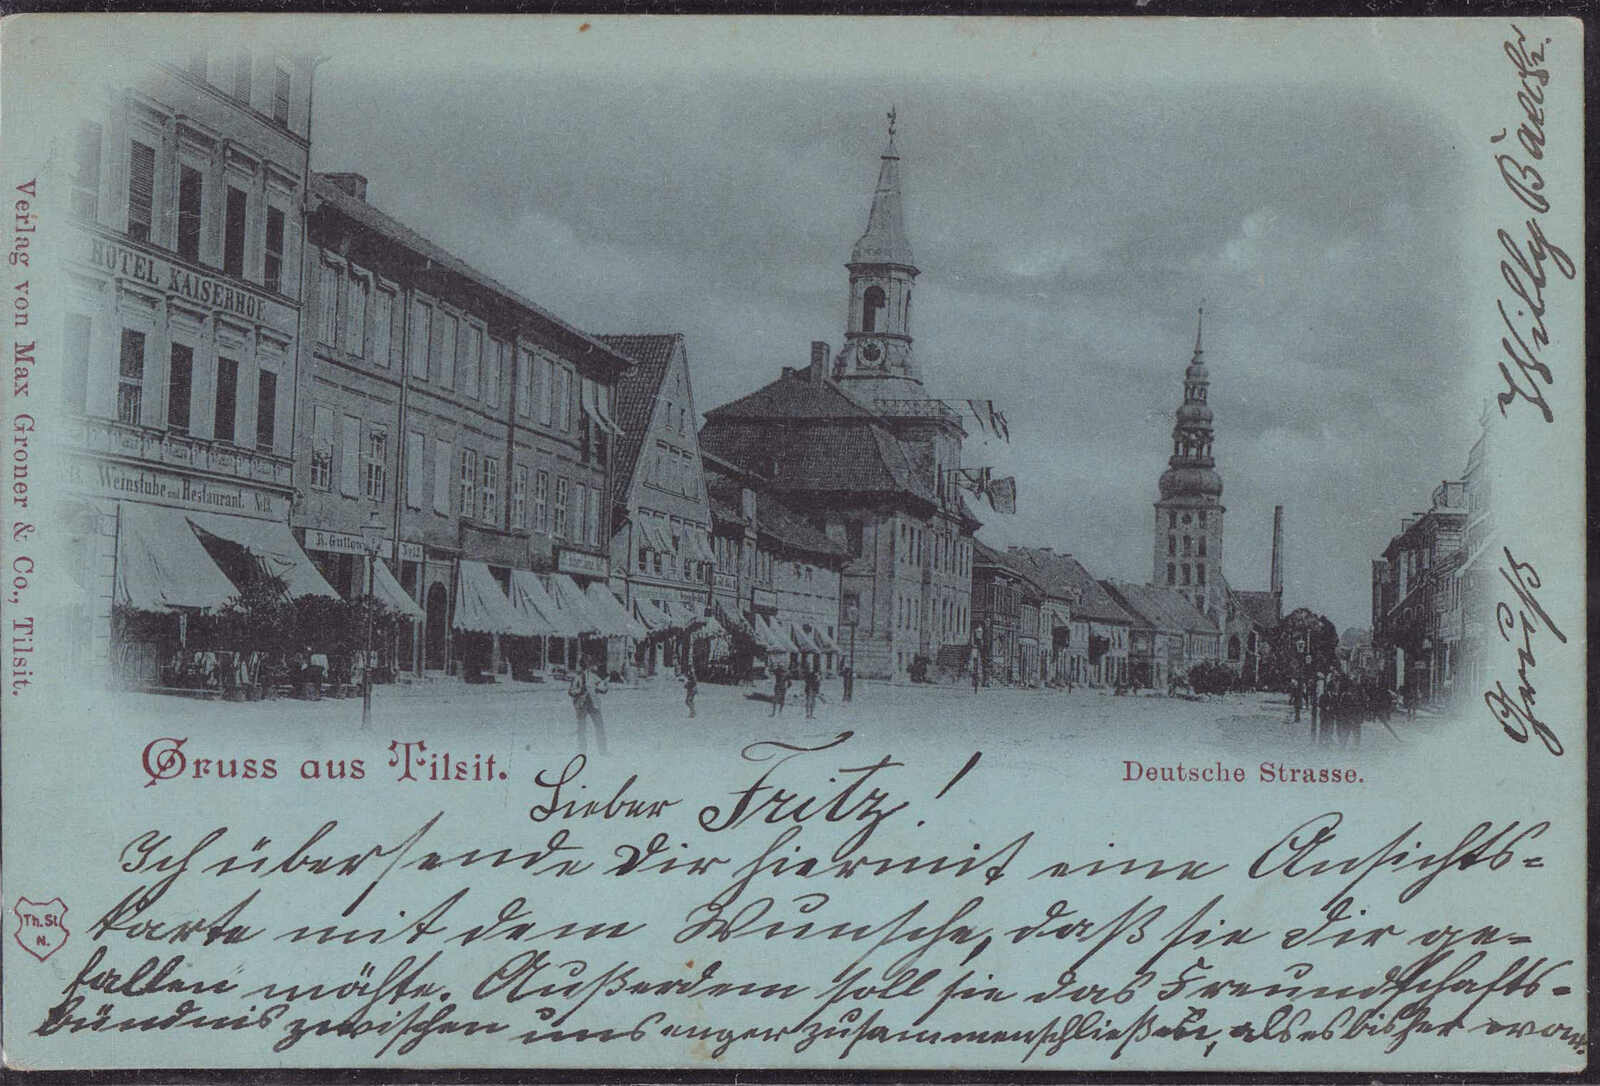 HOTEL KAISERHOF.
Weinstube und Restaurant. №13.
№12
Gruss aus Tilsit.
Deutsche Strasse.
Lieber Fritz!
Ich übersende Dir hiermit eine Ansichts-
karte mit dem Wunsche, daß sie Dir ge-
fallen möchte. Außerdem soll sie das Freundschafts-
bündnis zwischen uns enger zusammenschließen, als es bisher war.
Gruß Willy
Verlag von Max Groner & Co., Tilsit.
Th. St.
N.